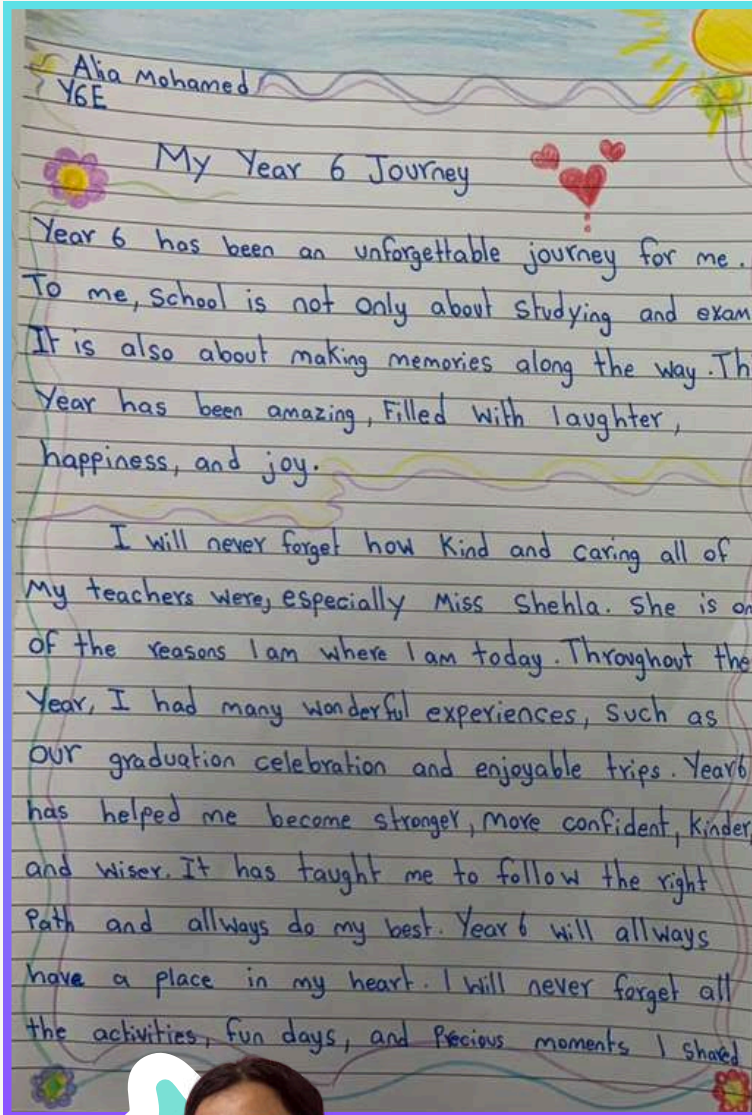 Alia Mohamed
Y6E
My Year 6 Journey
Year 6 has been an unforgettable journey for me.
To me, School is not only about studying and exam
It is also about making memories along the way. Th
Year has been amazing, Filled with laughter,
happiness, and joy.
I will never forget how kind and caring all of
My teachers were, especially Miss Shehla. She is on
of the reasons I am where I am today. Throughout the
Year, I had many wonderful experiences, such as
our graduation celebration and enjoyable trips. Year 6
has helped me become stronger, more confident, kinder,
and wiser. It has taught me to follow the right
Path and allways do my best. Year 6 will allways
have a place in my heart. I will never forget all
the activities, fun days, and Precious moments I shared